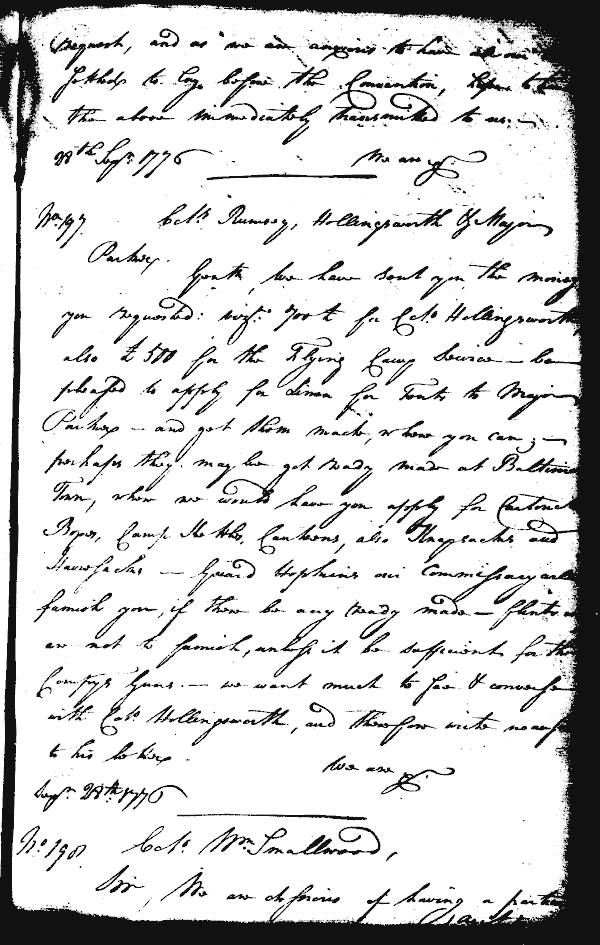 request, and as we are anxious to have
settled to lay before the Convention, hope to
the above immediately transmitted to us. —
28th Sepr. 1776 We are &c.
No. 197. Colls. Rumsey, Hollingsworth & Major
Parker.
Gentn. We have sent you the money
you requested: vizt. 700 £ for Colo. Hollingsworth
also £ 500 for the Flying Camp Service — be
pleased to apply for Linen for Tents to Major
Parker — and get them made, where you can; —
perhaps they may be got ready made at Baltimore
Town, where we would have you apply for Cartouch
Boxes, Camp Kettles, Canteens, also Knapsacks and
Haversacks — Gerard Hopkins our Commissary will
furnish you, if there be any ready made — flints
are not to furnish, unless it be sufficient for the
Compys Guns. — we want much to see & converse
with Colo. Hollingsworth, and therefore write no answer
to his letter.
We are &c.
Sepr. 28th 1776
No. 198. Colo. Wm. Smallwood,
Sir, We are desirous of having a